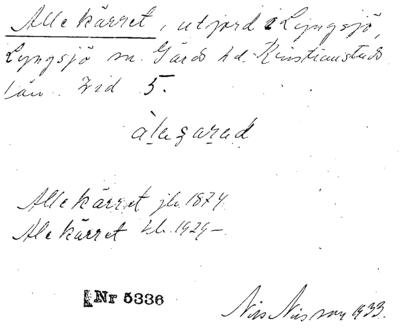 Allekärret, utjord i Lyngsjö,
Lyngsjö sn. Gärds hd. Kristianstads
län. Vid 5.
Allekärret jb. 1874
Alekärret 1929–
Nr 5336
Nils Nilsson 1933.